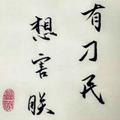 有刁民
想害朕